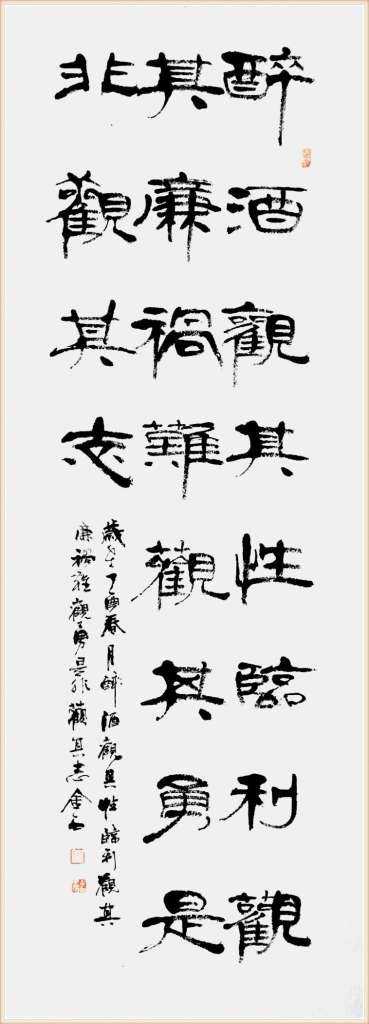 醉酒觀其性臨利觀
其廉禍難觀其勇是
非觀其志
歲在丁酉春月醉酒觀其性臨利觀其
廉禍難觀其勇是非觀其志金石